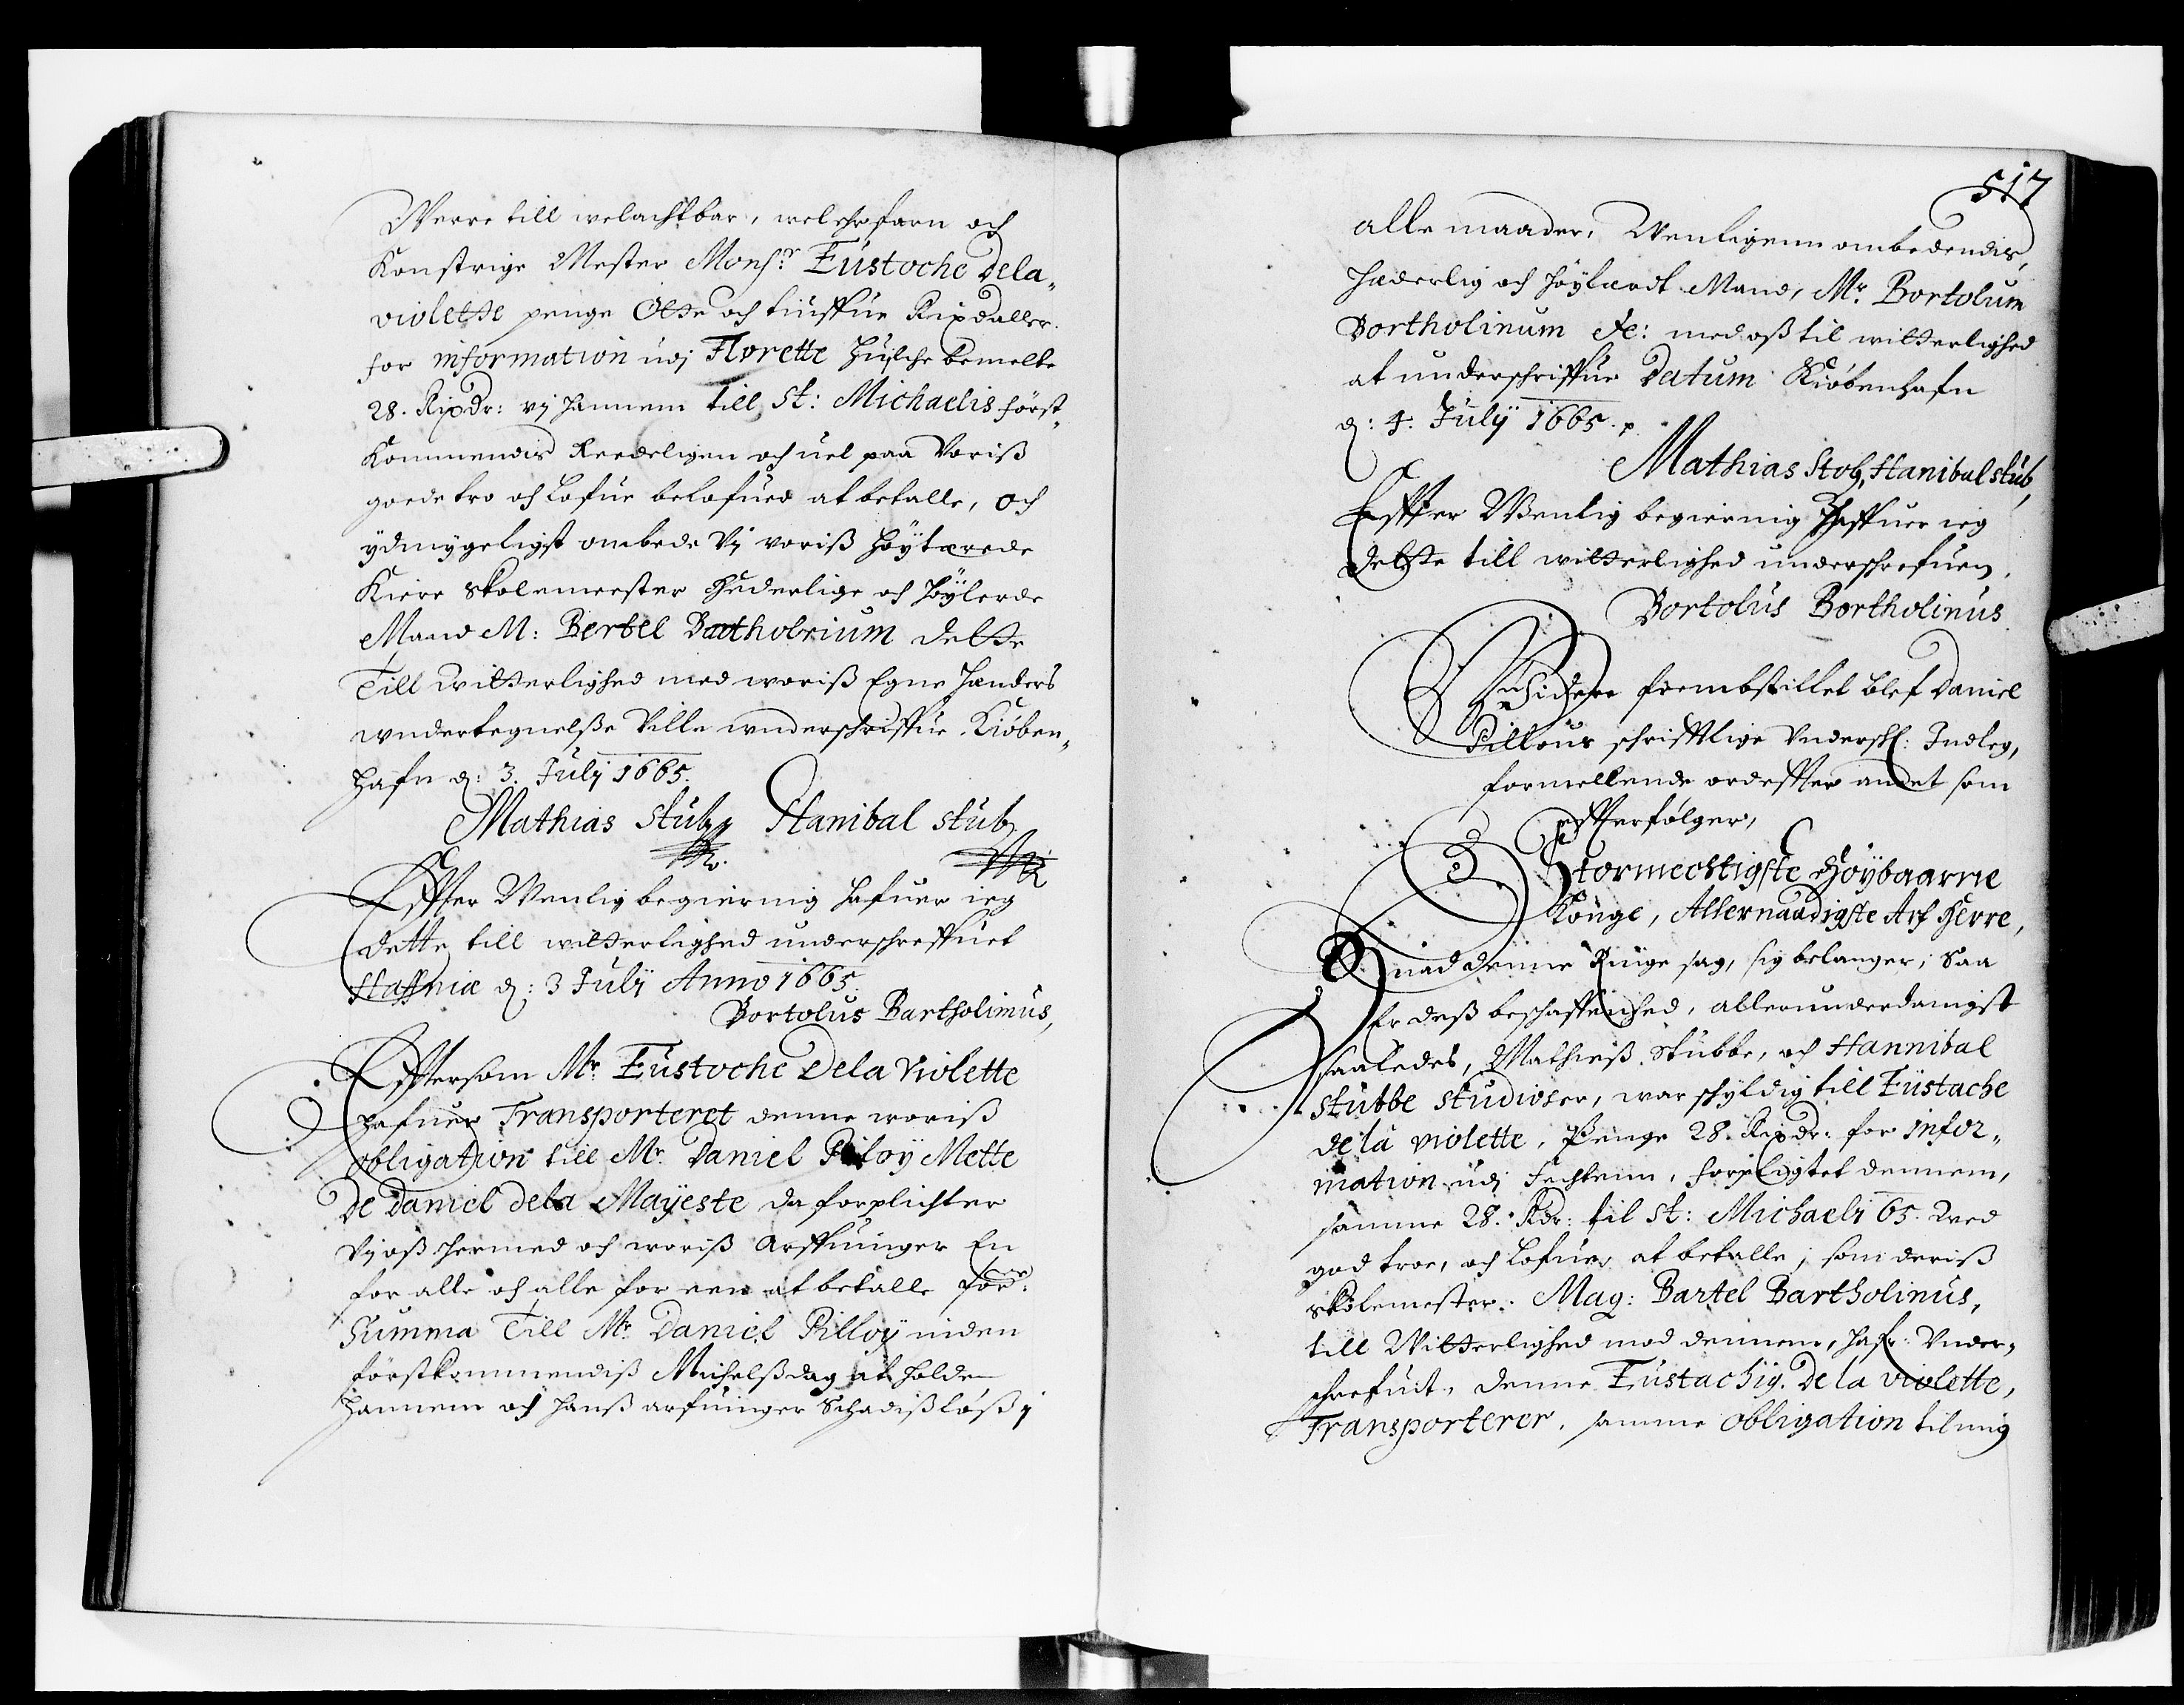 Werre till welachtbar, welehrfarn och
Konstrige Mester Mons:r Eustoche Dela„
violette penge Otte och tiuffue Rixdaller
for information udj Florette huilche bemelte
28. Rixdr: vj hannem till St: Michaelis först„
Kommendis Reedeligen och uel paa Voriß
goede tro och Lofue belofued at betalle, och
ydmygeligst ombede Vj voriß höytærede
Kiere Skolemeester hederlige och höylerde
Mand M: Bertel Bartholinum dette
Till witterlighed med woriß Egne handers
undertegnelße Ville underschriffue. Kiöben„
hafn d: 3. Julij 1665.
Mathias Stub, Hanibal Stub
Effter Wenlig begiering hafuer ieg
dette till witterlighed underschreffuet
Haffniæ d: 3 Julij Anno 1665.
Bortolus Bartholinus,
Efftersom Mr. Eustoche Dela Violette
hafuer Transporteret denne woriß
obligation till Mr. Daniel Piloy Mette
De Daniel dela Mayeste da forplichter
Vj oß hermed och woriß Arffuinger En
for alle och alle for een at betalle for:ne
Summa Till Mr. Daniel Pilloy inden
förstkommendiß Michelßdag at holde
hannem och hanß arfuinger Schadißlöß j
517
alle maader, Wenligenn ombedendis,
Hæderlig och höylærdt Mand, Mr. Bortolum
Bortholinum etc: med oß til witterlighed
at underschriffue Datum Kiöbenhafn
d: 4. Julij 1665.
Mathias Stob, Hanibal Stub,
Effter Wenlig begiering haffuer ieg
dette till witterlighed underschrefuen,
Bortolus Bortholinus
Widere frembstillet blef Daniel
Pillous schrifftlige Underschl: Indleg,
formellende ordeffter andet som
effterfölger,
Stormectigste Höybaarne
Konge, Allernaadigste Arf Herre,
Huad denne Ringe sag, sig belanger, Saa
Er deß beschaffenhed, allerunderdanigst
saaledes, Mathiaß Stubbe, och Hannibal
Stubbe Studioser, war schyldig till Eustache
de la violette, Penge 28. Rixdr: for infor„
mation udj Fechten, forpligtet dennem,
samme 28. Rdr: til St: Michaelj 65. Wed
god troe, och Lofue, at betalle, som deriß
Skolemester. Mag: Bartel Bartholinus,
till Witterlighed med dennem, hafr: Under„
schrefuit, denne Eustachij. De la Violette,
Transporterer, samme Obligation til mig